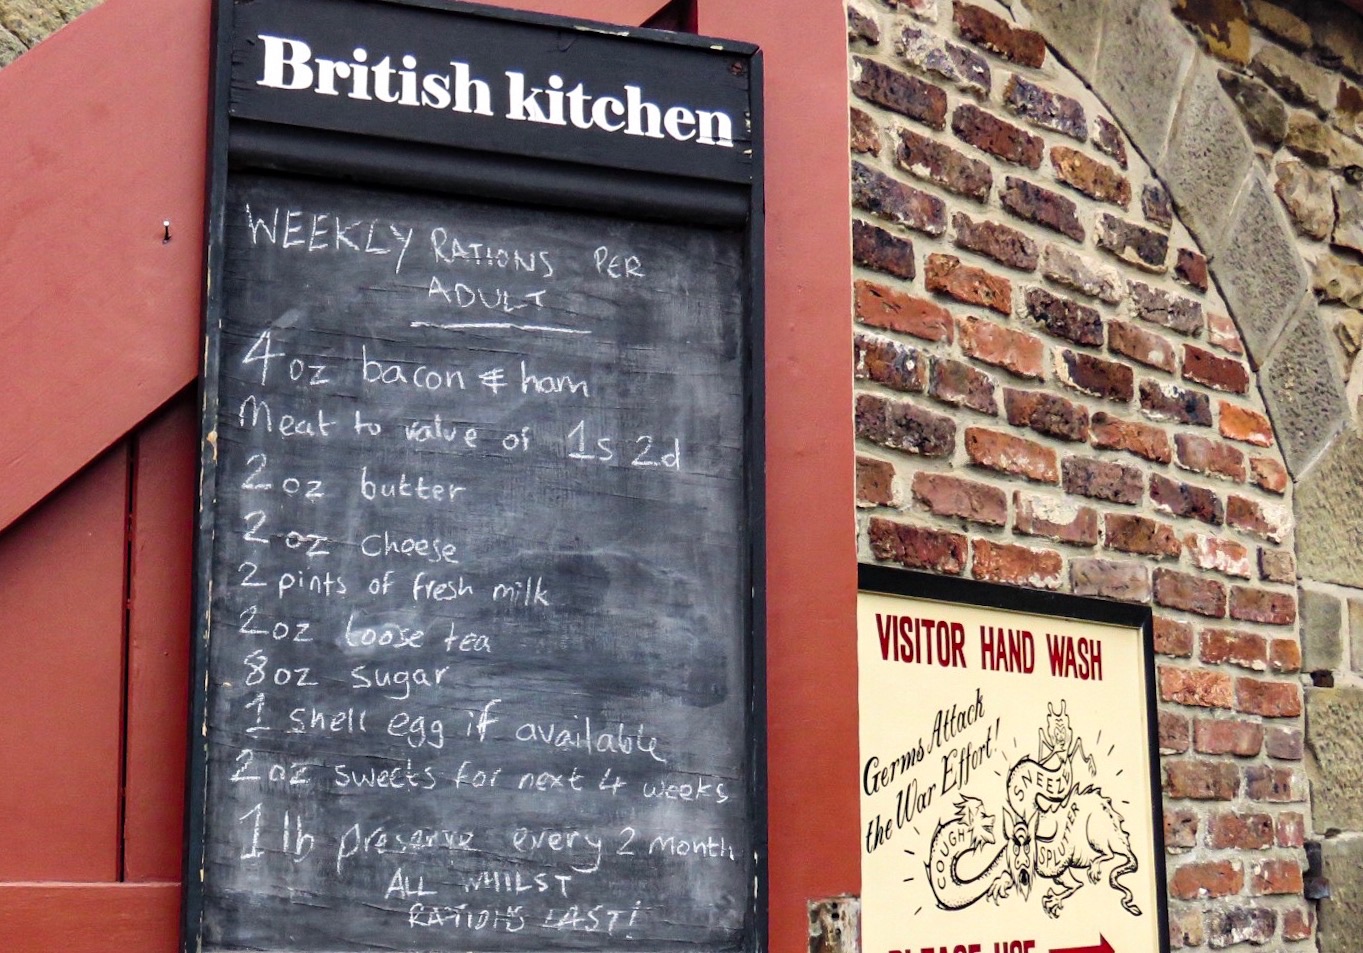 British kitchen
WEEKLY RATIONS PER
ADULT
4 oz bacon & ham
Meat to value of 1s 2d
2 oz butter
2 oz cheese
2 pints of fresh milk
2oz loose tea
8oz sugar
1 shell egg if available
2 oz sweets for next 4 weeks
1 lb preserve every 2 month
ALL WHILST
RATIONS LAST!
VISITOR HAND WASH
Germs Attack
the War Effort!
SNEEZY
COUGH
SPLUTTER
PLEASE USE